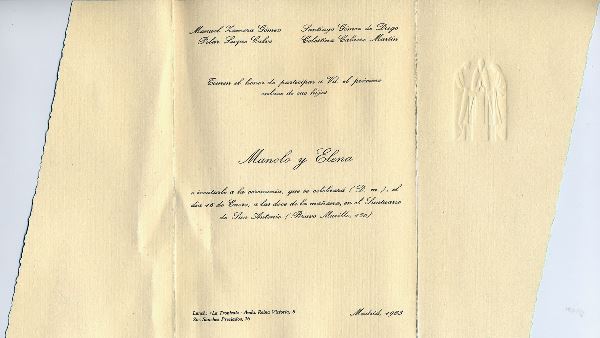 Manuel Zamora Gómez
Pilar Luque Calvo
Santiago Gómez de Diego
Celestina Cabezas Martín
Tienen el honor de participar a Vd. el próximo
enlace de sus hijos
Manolo y Elena
e invitarle a la ceremonia, que se celebrará (D. m.), el
día 16 de Enero, a las doce de la mañana, en el Santuario
de San Antonio (Bravo Murillo, 150)
Lunch: «La Tropical» Avda. Reina Victoria, 8
Sánchez Preciados, 76
Madrid, 1963